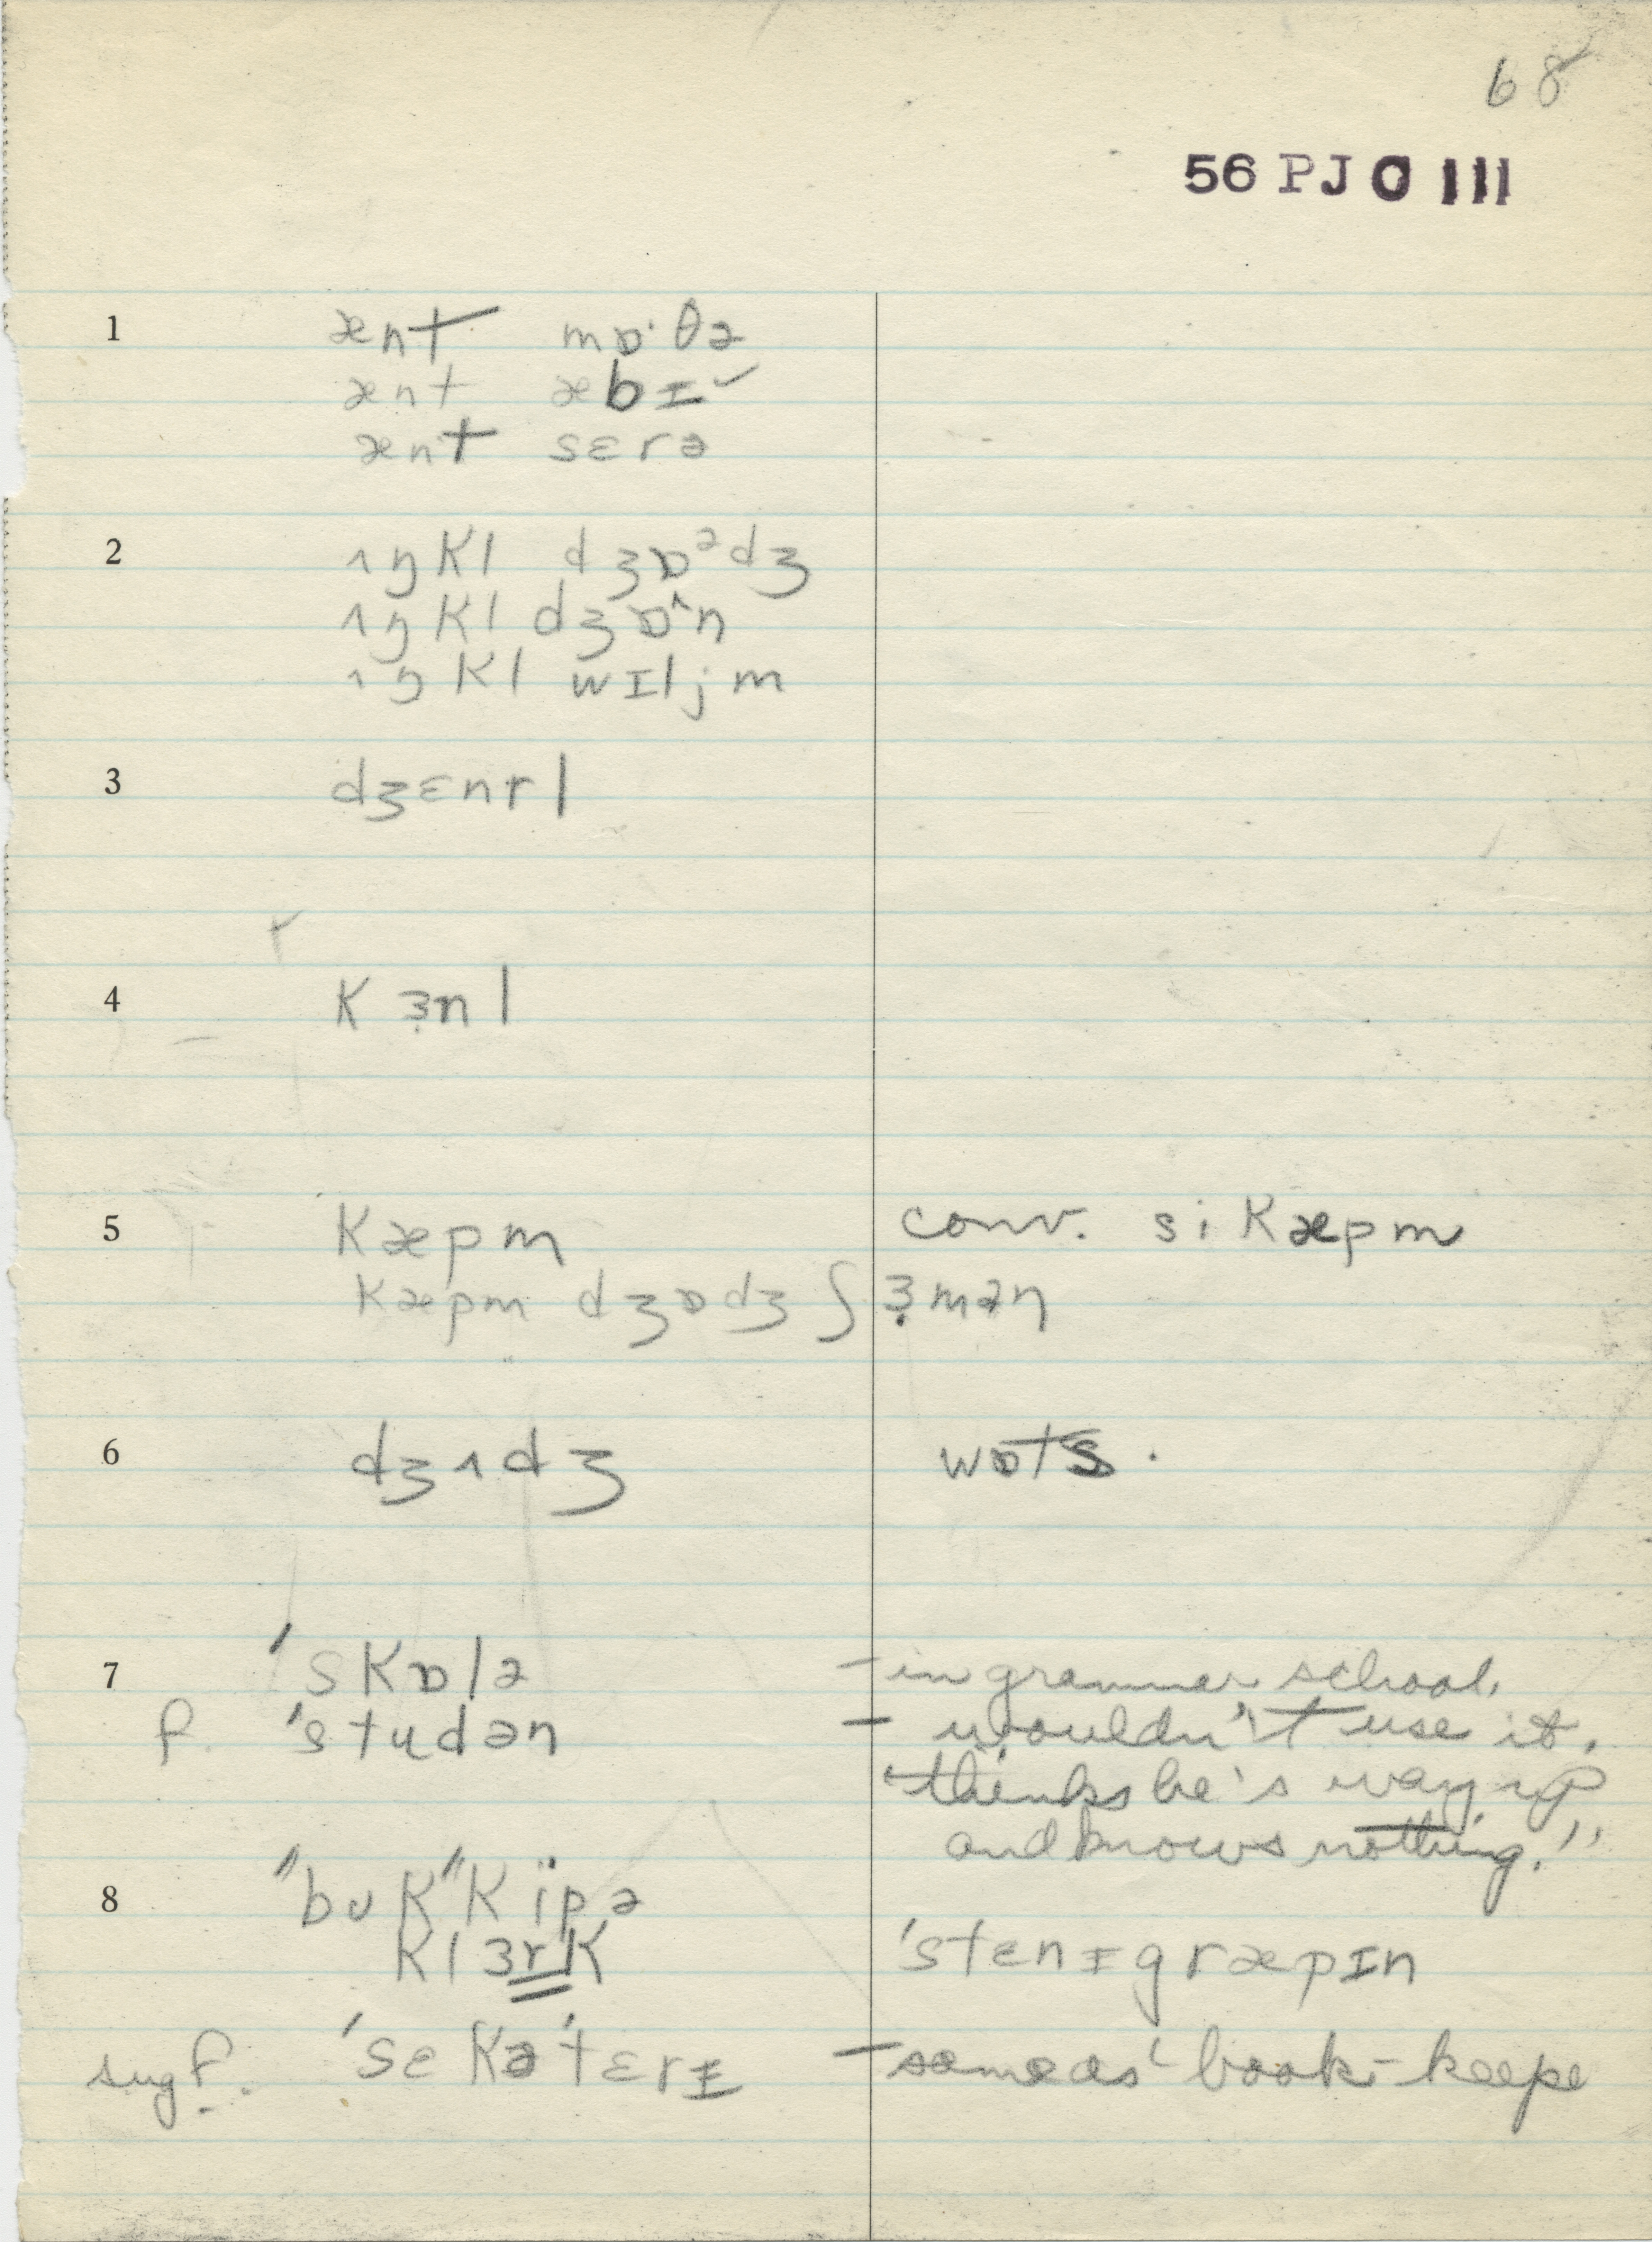 68
56 PJ 0 111
1 ænt mɒ·θə
ænt æbɪ
ænt sɛrə
2 ʌŋkl dʒɒᵊdʒ
ʌŋkl dʒɒ˄n
ʌŋkl wɪljm
3 dʒɛnrl
4 kɜ̣nl
5 kæpm conv. sikæpm
kæpm dʒɒdʒ ʃɜ̣mən
6 dʒʌdʒ wɒts.
7 'skɒlə – in grammar school.
f. 'studən – wouldn't use it.
"thinks he's way up
and knows nothing."
8 "bʊk"kïpə
klɜrk 'stɛnɪgræpɪn
sug f. 'sɛkə'tɛrɪ – same as 'book-keepe